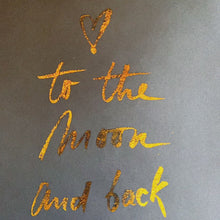 to the
moon
and back